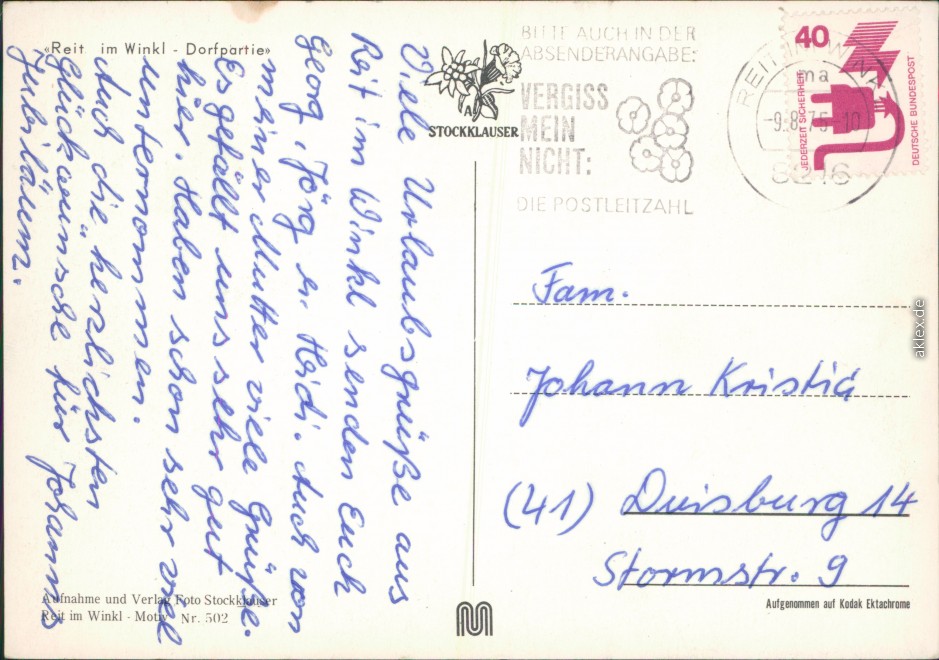 «Reit im Winkl - Dorfpartie»
Viele Urlaubsgrüße aus
Reit im Winkl senden Euch
Georg, Jörg u. Heidi. Auch von
meiner Mutter viele Grüße.
Es gefällt uns sehr gut
hier. Haben schon sehr viel
unternommen.
Auch die herzlichsten
Glückwünsche für Johanns
Jubiläum.
STOCKKLAUSER
BITTE AUCH IN DER
ABSENDERANGABE:
VERGISS
MEIN
NICHT:
DIE POSTLEITZAHL
REIT IM WINKL
ma
-9.8.75-10
8216
40
JEDERZEIT SICHERHEIT
DEUTSCHE BUNDESPOST
Fam.
Johann Kristić
(41) Duisburg 14
Stormstr. 9
Aufnahme und Verlag Foto Stockklauser
Reit im Winkl - Motiv Nr. 502
Aufgenommen auf Kodak Ektachrome
aklex.de